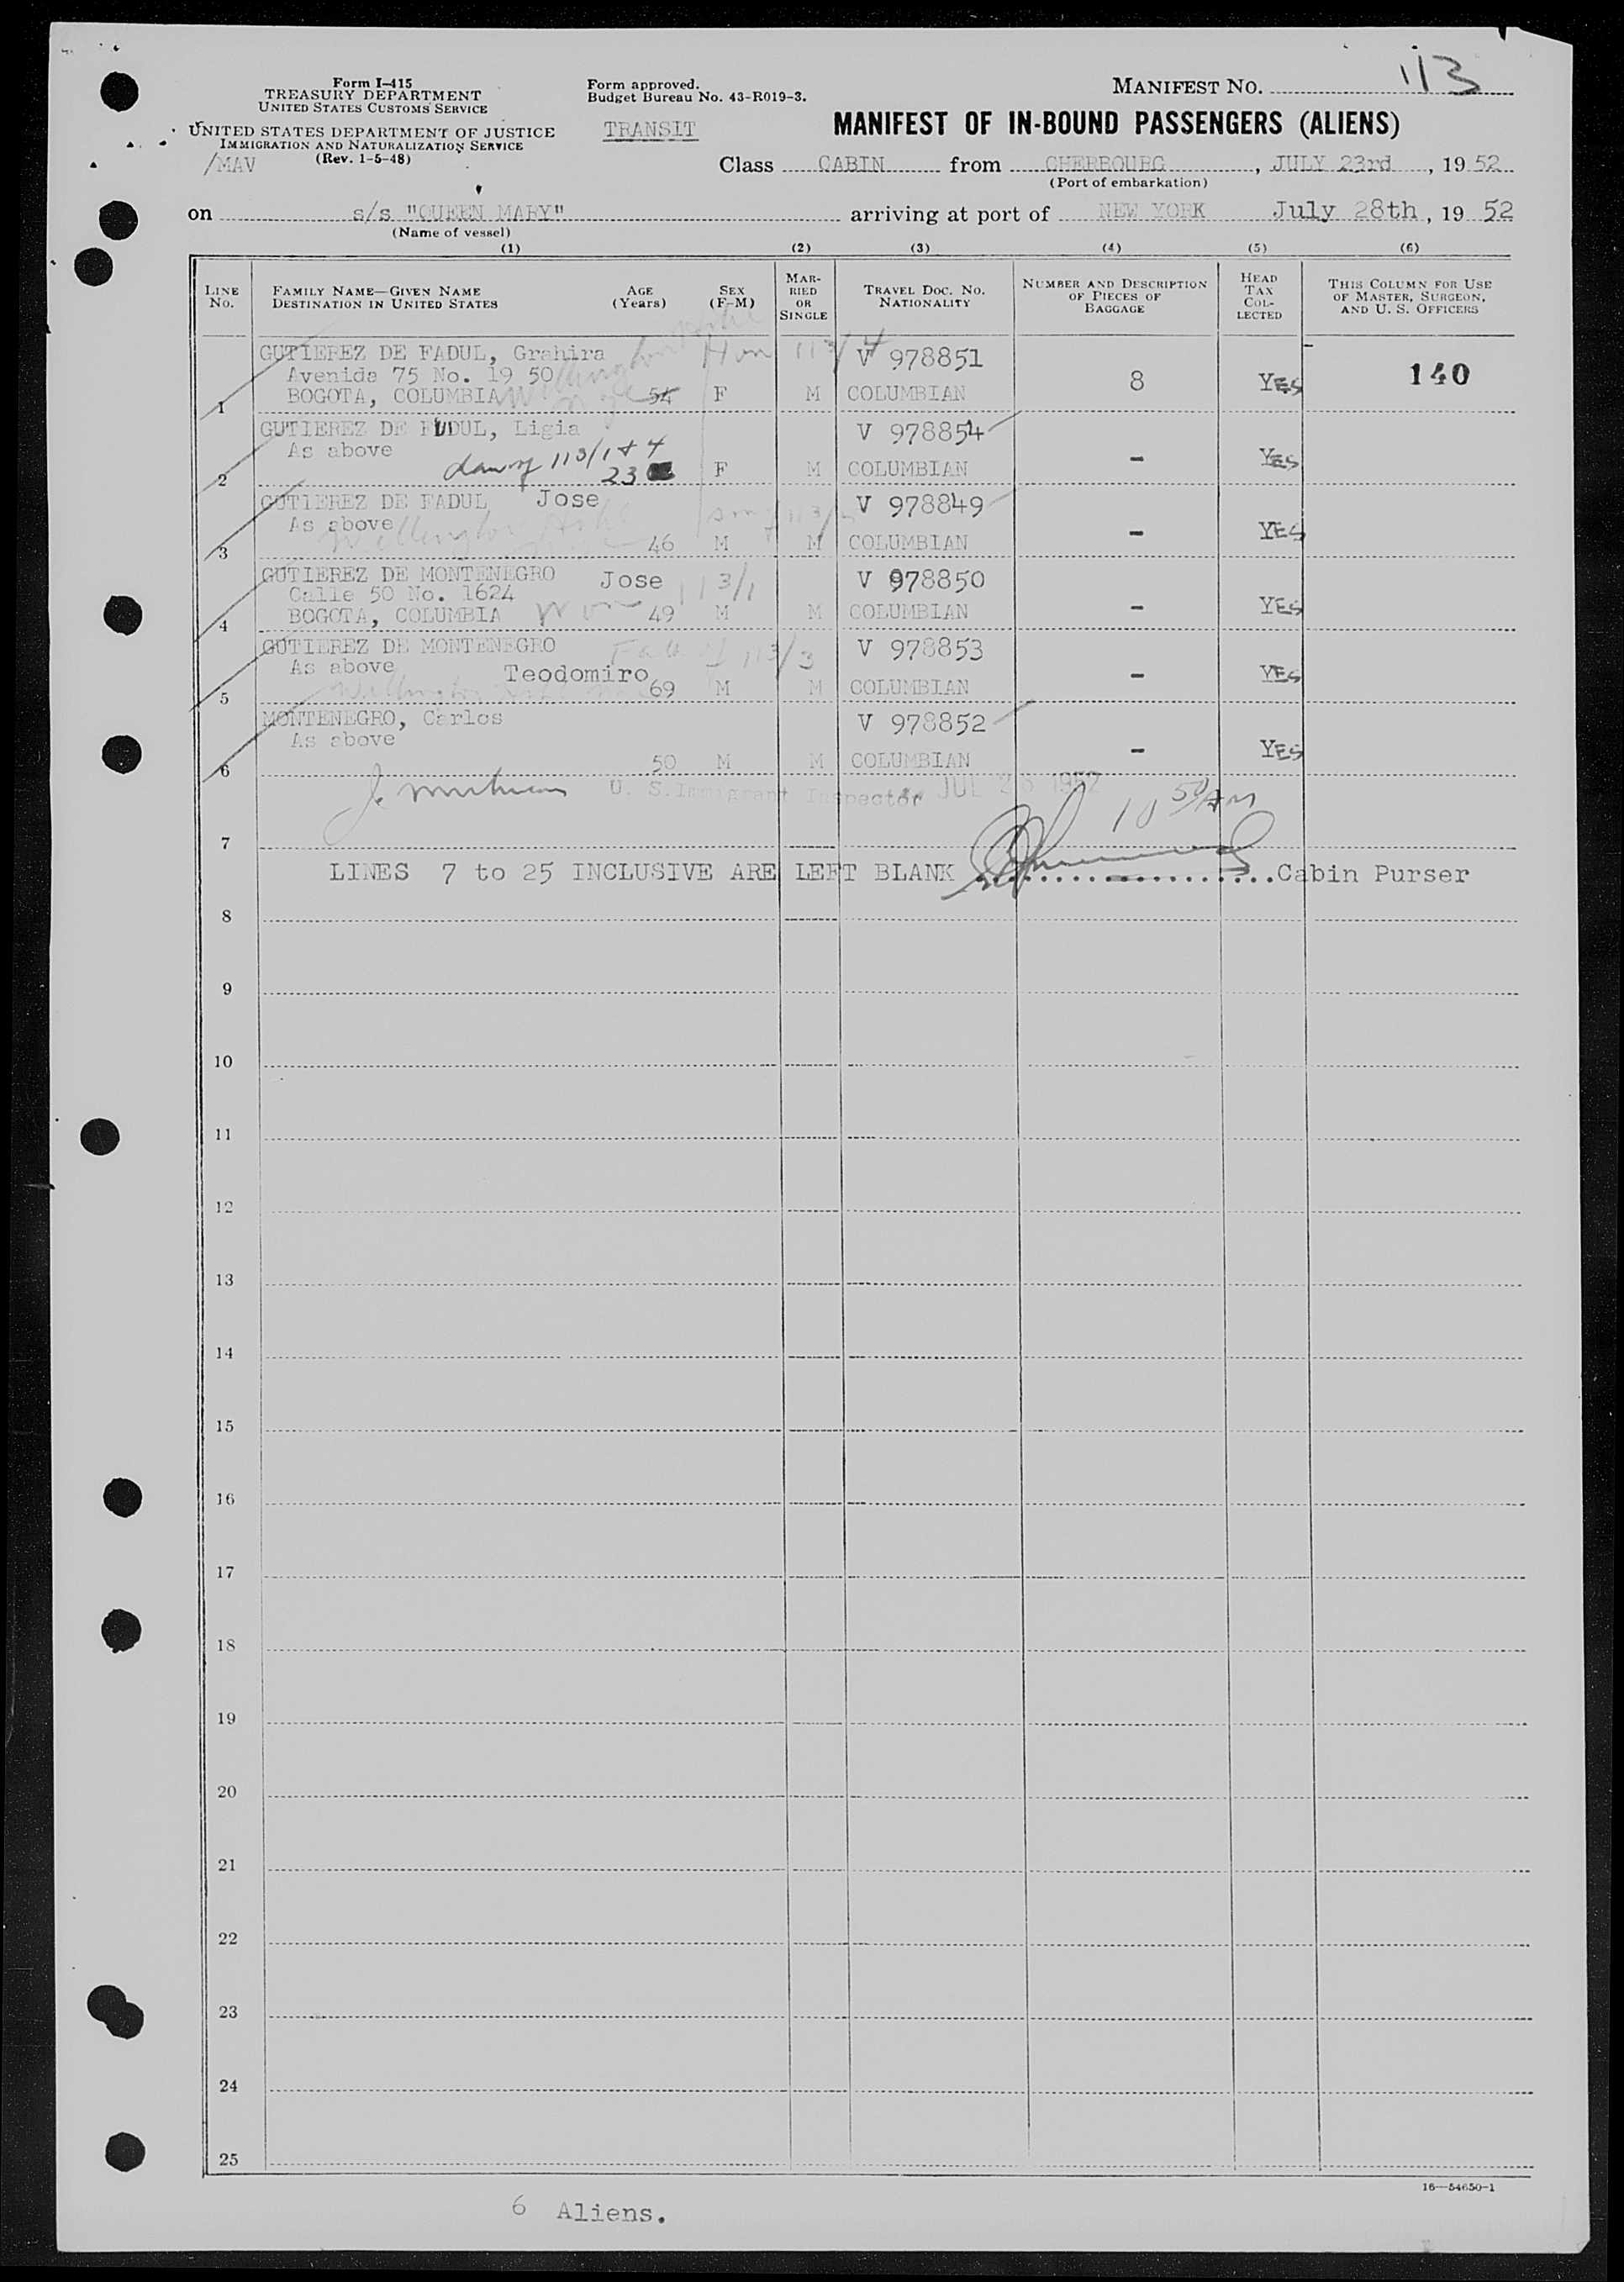 Form I-415
TREASURY DEPARTMENT
UNITED STATES CUSTOMS SERVICE
UNITED STATES DEPARTMENT OF JUSTICE
IMMIGRATION AND NATURALIZATION SERVICE
(Rev. 1-5-48)
/MAV
Form approved.
Budget Bureau No. 43-R019-3.
TRANSIT
MANIFEST NO. 113
MANIFEST OF IN-BOUND PASSENGERS (ALIENS)
Class CABIN from CHERBOURG, JULY 23rd, 19 52
(Port of embarkation)
on s/s "QUEEN MARY" arriving at port of NEW YORK July 28th, 19 52
(Name of vessel)
(1) (2) (3) (4) (5) (6)
LINE NO.
FAMILY NAME—GIVEN NAME
DESTINATION IN UNITED STATES
AGE (Years)
SEX (F-M)
MARRIED OR SINGLE
TRAVEL DOC. NO. NATIONALITY
NUMBER AND DESCRIPTION OF PIECES OF BAGGAGE
HEAD TAX COLLECTED
THIS COLUMN FOR USE OF MASTER, SURGEON, AND U. S. OFFICERS
GUTIEREZ DE FADUL, Grahira V 978851
Avenida 75 No. 19 50 8 YES 140
1 BOGOTA, COLUMBIA 54 F M COLUMBIAN
GUTIEREZ DE FUDUL, Ligia V 978854
As above 113/1+4 - YES
2 23 F M COLUMBIAN
GUTIEREZ DE FADUL Jose V 978849
As above - YES
3 46 M M COLUMBIAN
GUTIEREZ DE MONTENEGRO Jose 113/1 V 978850
Calle 50 No. 1624 - YES
4 BOGOTA, COLUMBIA 49 M M COLUMBIAN
GUTIEREZ DE MONTENEGRO 113/3 V 978853
As above Teodomiro - YES
5 69 M M COLUMBIAN
MONTENEGRO, Carlos V 978852
As above - YES
6 50 M M COLUMBIAN
U. S. Immigrant Inspector JUL 28 1952 10 50 AM
7
LINES 7 to 25 INCLUSIVE ARE LEFT BLANK ....................Cabin Purser
8
9
10
11
12
13
14
15
16
17
18
19
20
21
22
23
24
25
16—54650-1
6 Aliens.